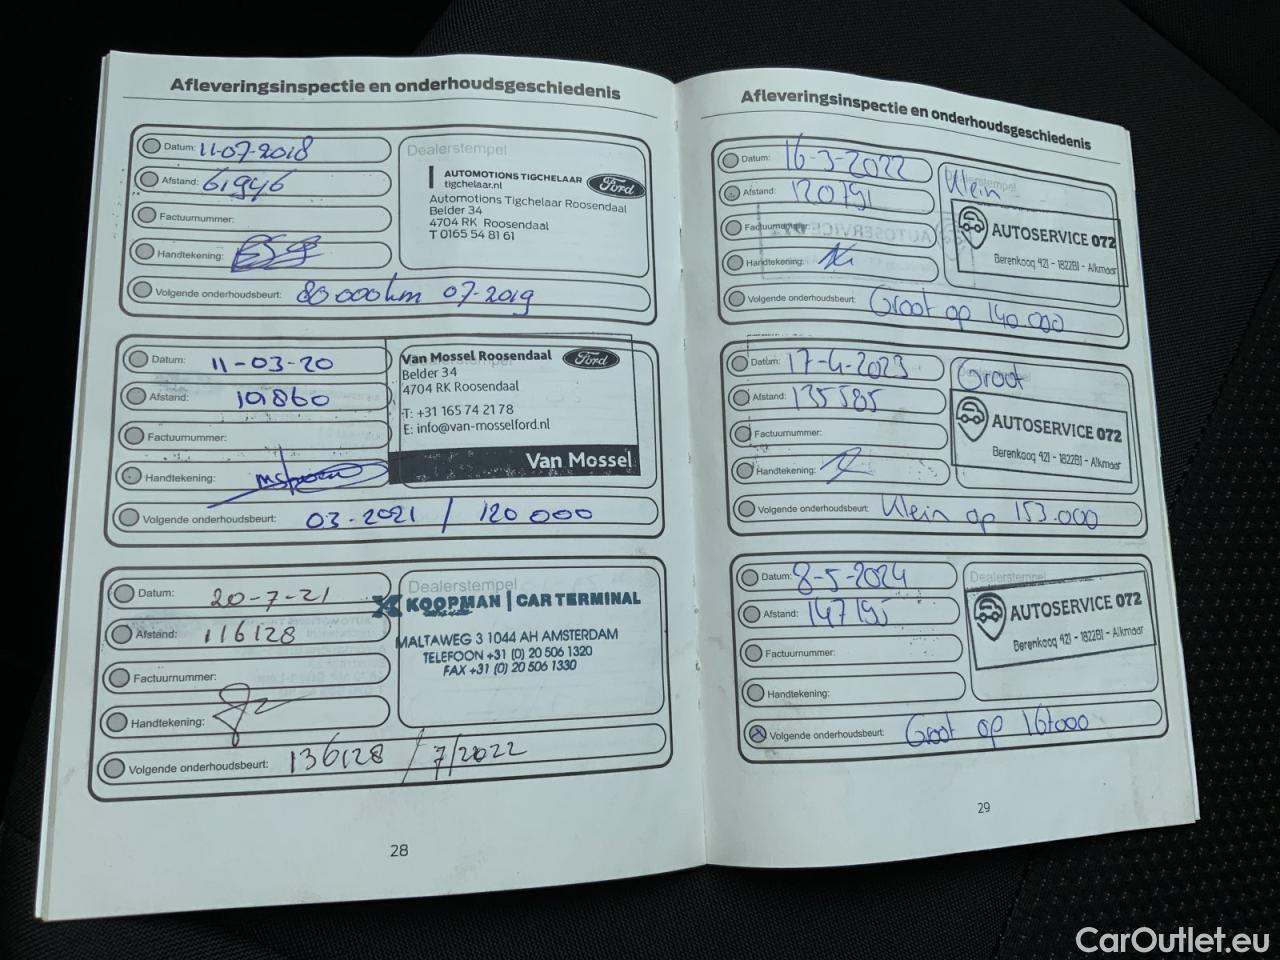 Afleveringsinspectie en onderhoudsgeschiedenis
Datum: 11-07-2018
Afstand: 61946
Factuurnummer:
Handtekening:
Volgende onderhoudsbeurt: 80 000km 07-2019
Dealerstempel
AUTOMOTIONS TIGCHELAAR
tigchelaar.nl
Ford
Automotions Tigchelaar Roosendaal
Belder 34
4704 RK Roosendaal
T 0165 54 81 61
Datum: 11-03-20
Afstand: 101860
Factuurnummer:
Handtekening:
Volgende onderhoudsbeurt: 03-2021 / 120 000
Van Mossel Roosendaal
Ford
Belder 34
4704 RK Roosendaal
T: +31 165 74 21 78
E: info@van-mosselford.nl
Van Mossel
Datum: 20-7-21
Afstand: 116128
Factuurnummer:
Handtekening:
Volgende onderhoudsbeurt: 136128 / 7/2022
Dealerstempel
KOOPMAN | CAR TERMINAL
MALTAWEG 3 1044 AH AMSTERDAM
TELEFOON +31 (0) 20 506 1320
FAX +31 (0) 20 506 1330
28
Afleveringsinspectie en onderhoudsgeschiedenis
Datum: 16-3-2022
Afstand: 120791
Factuurnummer:
Handtekening:
Volgende onderhoudsbeurt: Groot op 140.000
Dealerstempel
Klein
AUTOSERVICE 072
Berenkoog 421 - 1822BJ - Alkmaar
Datum: 17-4-2023
Afstand: 135585
Factuurnummer:
Handtekening:
Volgende onderhoudsbeurt: Klein op 153.000
Groot
AUTOSERVICE 072
Berenkoog 421 - 1822BJ - Alkmaar
Datum: 8-5-2024
Afstand: 147195
Factuurnummer:
Handtekening:
Volgende onderhoudsbeurt: Groot op 167000
Dealerstempel
AUTOSERVICE 072
Berenkoog 421 - 1822BJ - Alkmaar
29
CarOutlet.eu